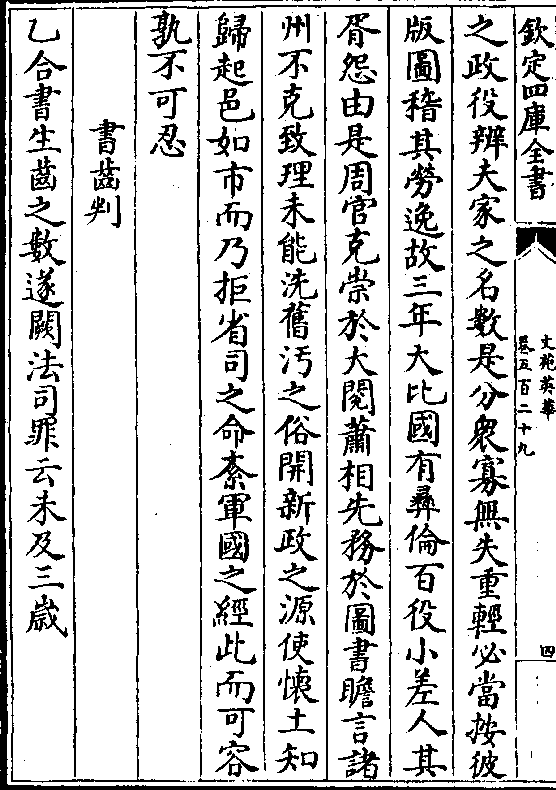 欽定四庫全書
文苑英華
卷五百二十九
四
之政役辨夫家之名數是分衆寡無失重輕必當按彼
版圖稽其勞逸故三年大比國有彝倫百役小差人其
胥怨由是周官克崇於大閱蕭相先務於圖書瞻言諸
州不克致理未能洗舊汚之俗開新政之源使懷土知
歸起邑如市而乃拒省司之命紊軍國之經此而可容
孰不可忍
書齒判
乙合書生齒之數遂闕法司罪云未及三歲